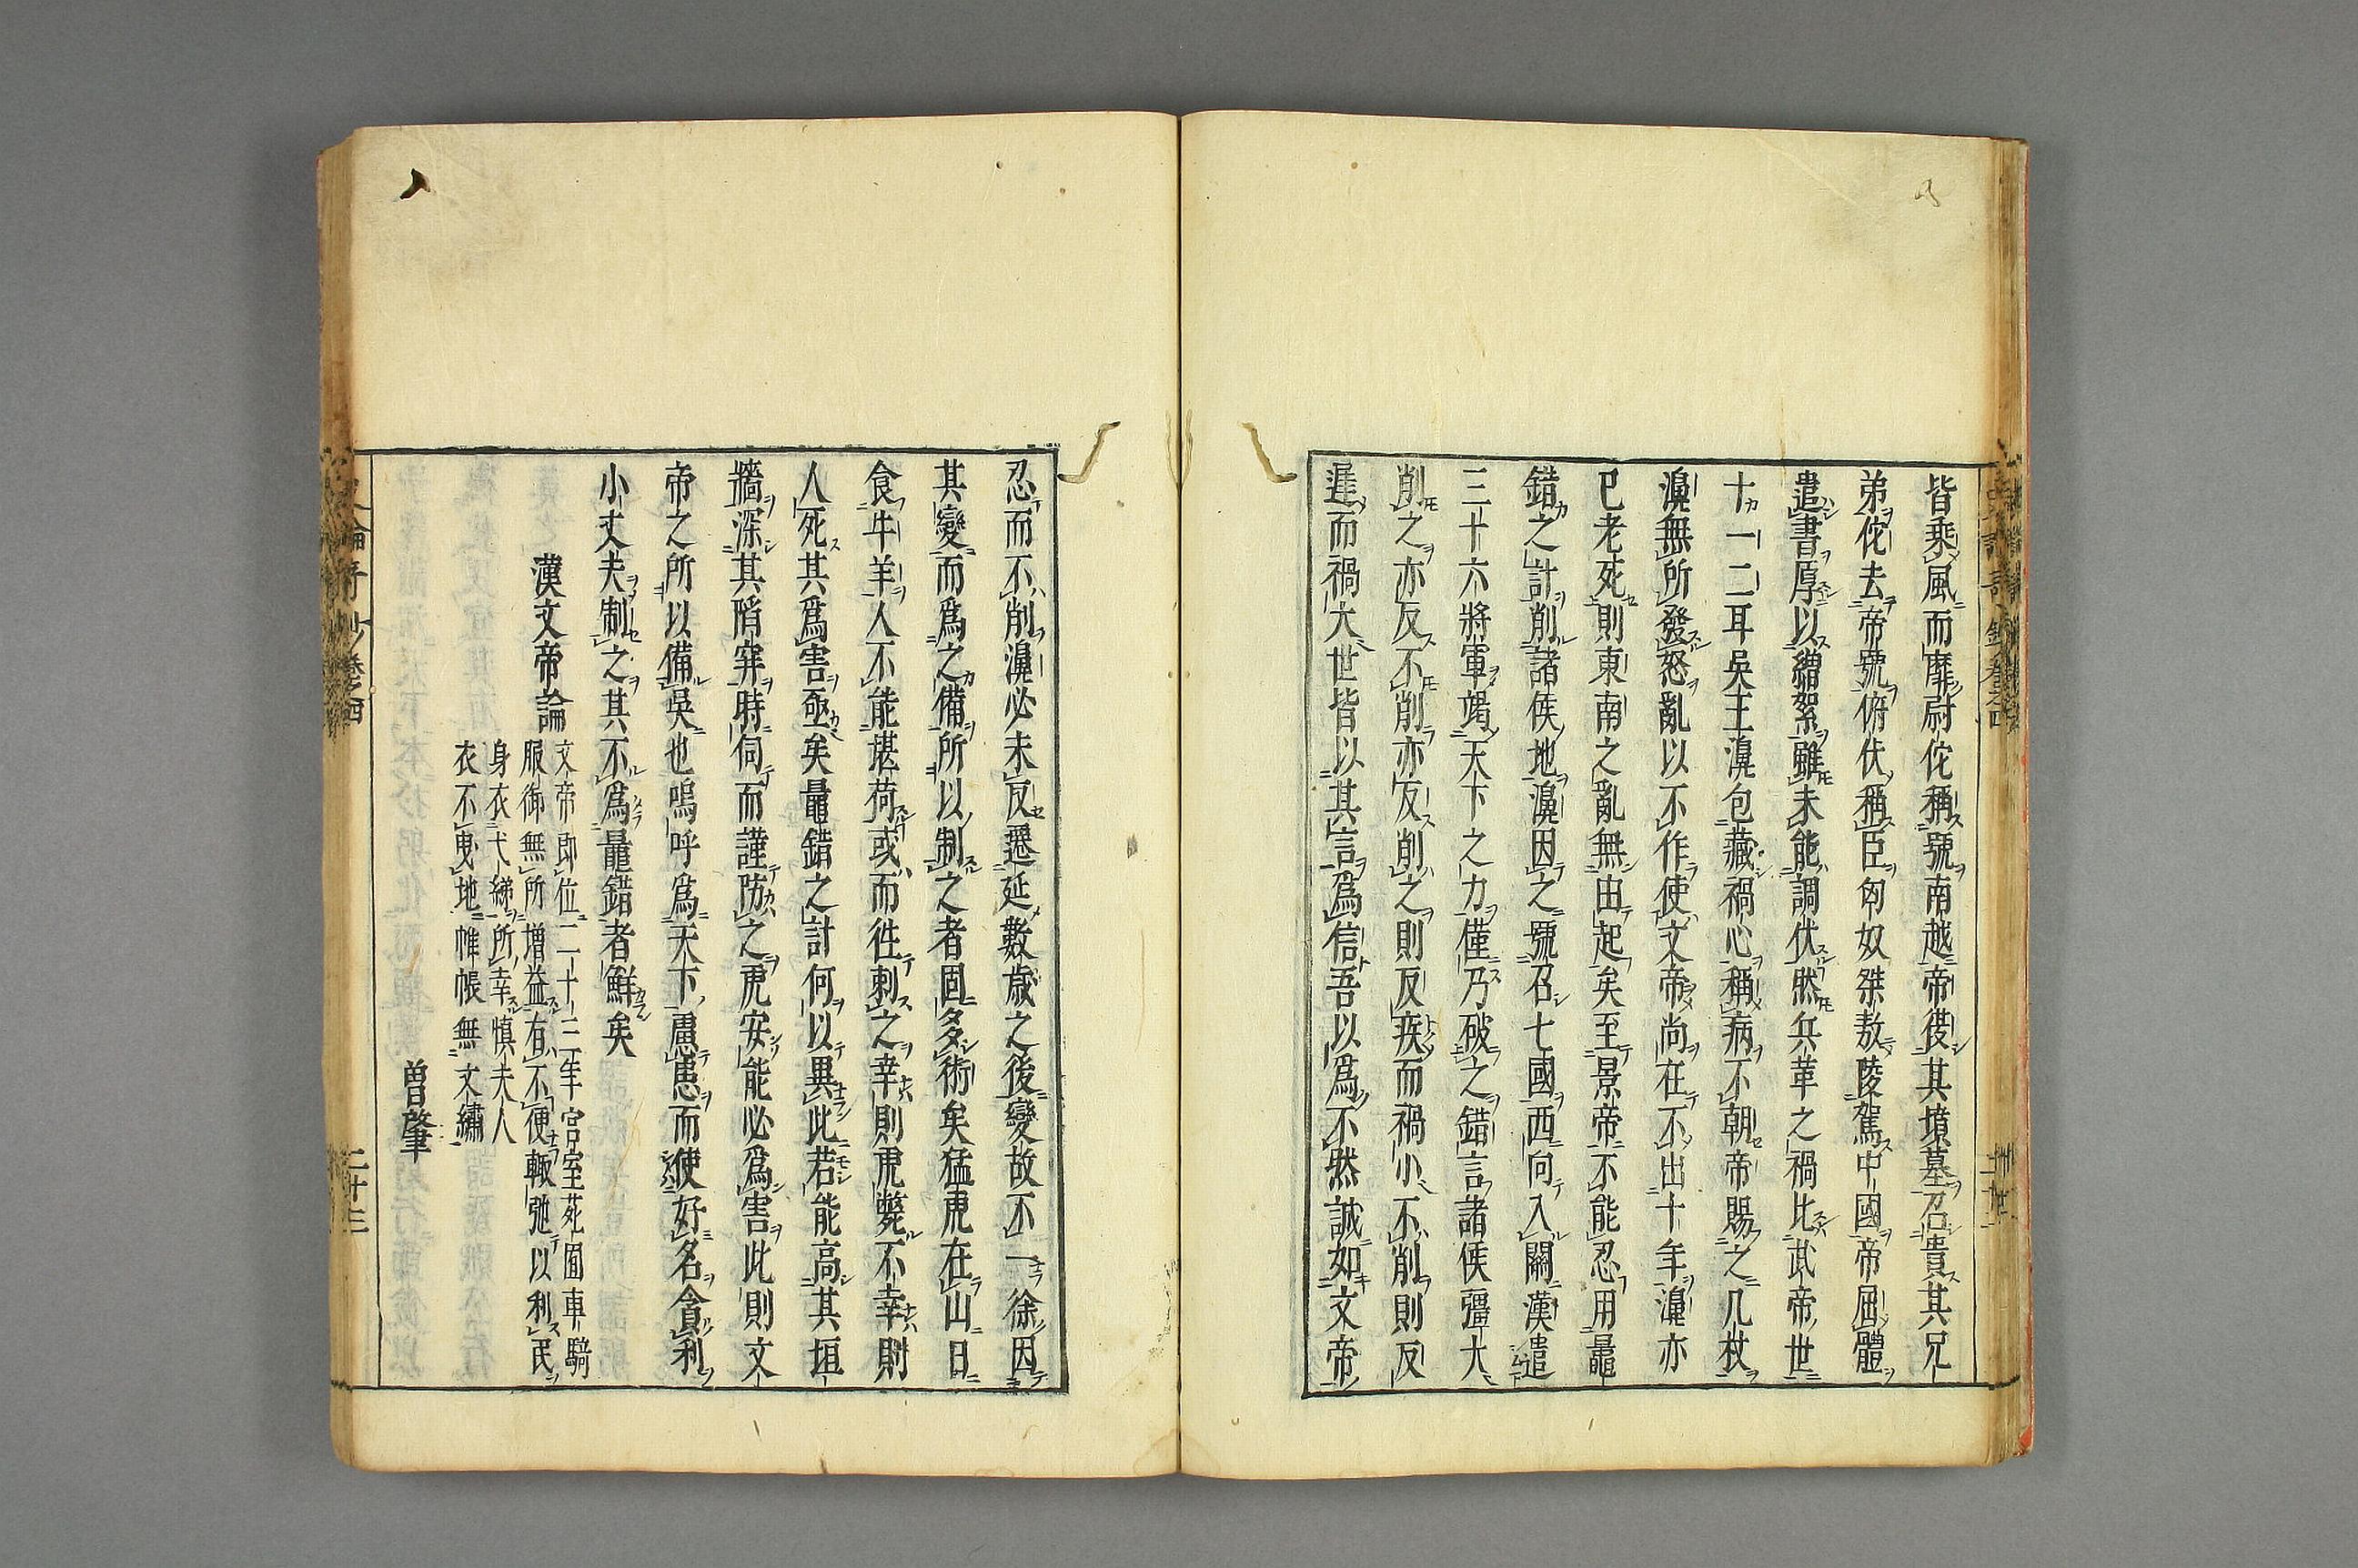 皆乘風而靡尉佗稱號南越帝復其墳墓召貴其兄
弟佗去帝號俯伏稱臣匈奴桀敖陵駕中國帝屈體
遣書厚以繒絮雖未能調伏然兵革之禍比武帝世
十一二耳吳王濞包藏禍心稱病不朝帝賜之几杖
濞無所發怒亂以不作使文帝尚在不出十年濞亦
已老死則東南之亂無由起矣至景帝不能忍用鼂
錯之計削諸侯地濞因之號召七國西向入關漢遣
三十六將軍竭天下之力僅乃破之錯言諸侯彊大
削之亦反不削亦反削之則反疾而禍小不削則反
遲而禍大世皆以其言爲信吾以爲不然誠如文帝
忍而不削濞必未反遷延數歲之後變故不一徐因
其變而爲之備所以制之者固多術矣猛虎在山日
食牛羊人不能堪荷或而徃刺之幸則虎斃不幸則
人死其爲害亟矣鼂錯之計何以異此若能高其垣
牆深其陷穽時伺而謹防之虎安能必爲害此則文
帝之所以備吳也嗚呼爲天下慮患而使好名貪利
小丈夫制之其不爲鼂錯者鮮矣
漢文帝論
文帝即位二十三年宮室苑囿車騎
服御無所增益有不便輙弛以利民
身衣弋綈所幸愼夫人
衣不曳地帷帳無文繡
曾肇
卷之四
二十三